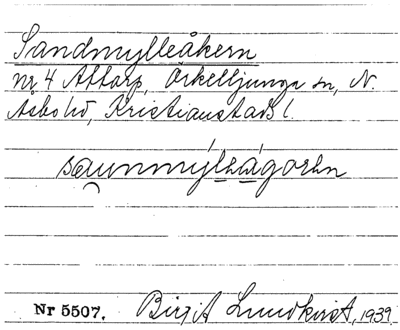 Sandmylleåkern
nr 4 Attarp, Örkelljunga sn, N.
Åsbo hd, Kristianstads l.
saunmýllaágorn
Nr 5507. Birgit Lundkvist, 1939.